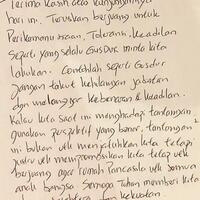 Terima kasih atas kunjungannya
hari ini. Teruskan berjuang untuk
Perikemanusiaan, Toleransi, Keadilan
Seperti yang selalu Gus Dur minta kita
lakukan. Contohlah seperti Gusdur
jangan takut kehilangan jabatan
dan melanggar kebenaran & keadilan.
Kalau kita saat ini menghadapi tantangan
gunakan perspektif yang benar, tantangan2
ini bukan utk menjatuhkan kita tetapi
justru utk mempromosikan kita tetap utk
berjuang agar rumah Pancasila utk semua
anak bangsa. Semoga Tuhan memberi kita
dan kekuatan.